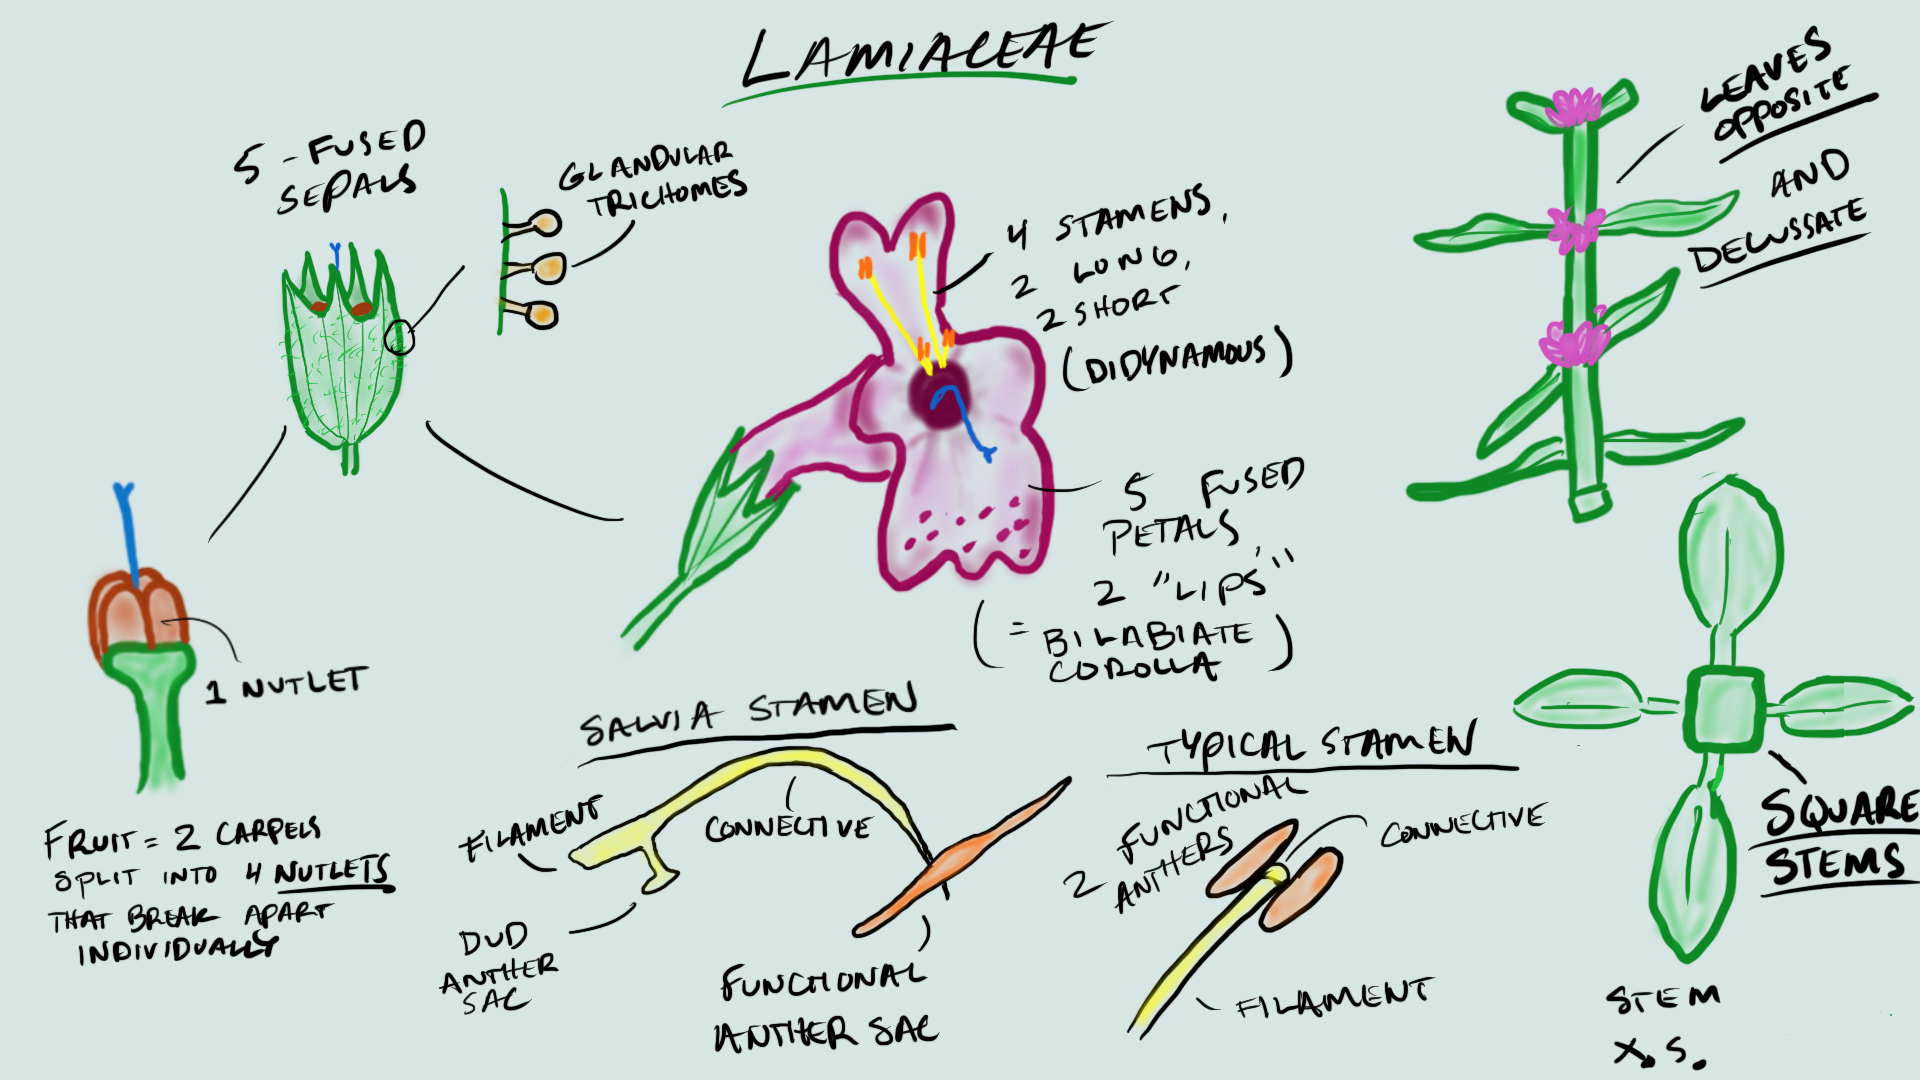 LAMIACEAE
5 - FUSED
SEPALS
GLANDULAR
TRICHOMES
4 STAMENS,
2 LONG,
2 SHORT
(DIDYNAMOUS)
LEAVES
OPPOSITE
AND
DECUSSATE
5 FUSED
PETALS,
2 "LIPS"
(= BILABIATE
COROLLA)
1 NUTLET
FRUIT = 2 CARPELS
SPLIT INTO 4 NUTLETS
THAT BREAK APART
INDIVIDUALLY
SALVIA STAMEN
FILAMENT
CONNECTIVE
DUD
ANTHER
SAC
FUNCTIONAL
ANTHER SAC
TYPICAL STAMEN
2 FUNCTIONAL
ANTHERS
CONNECTIVE
FILAMENT
SQUARE
STEMS
STEM
X.S.